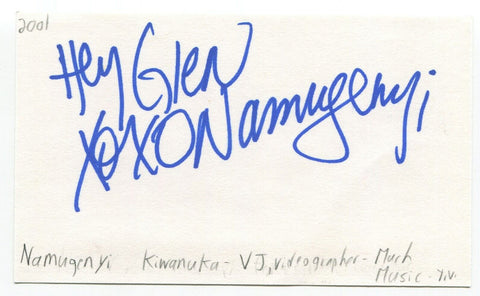 2001
Hey Glen
XOXO Namugenyi
Namugenyi Kiwanuka - VJ, videographer - Much
Music - T.V.